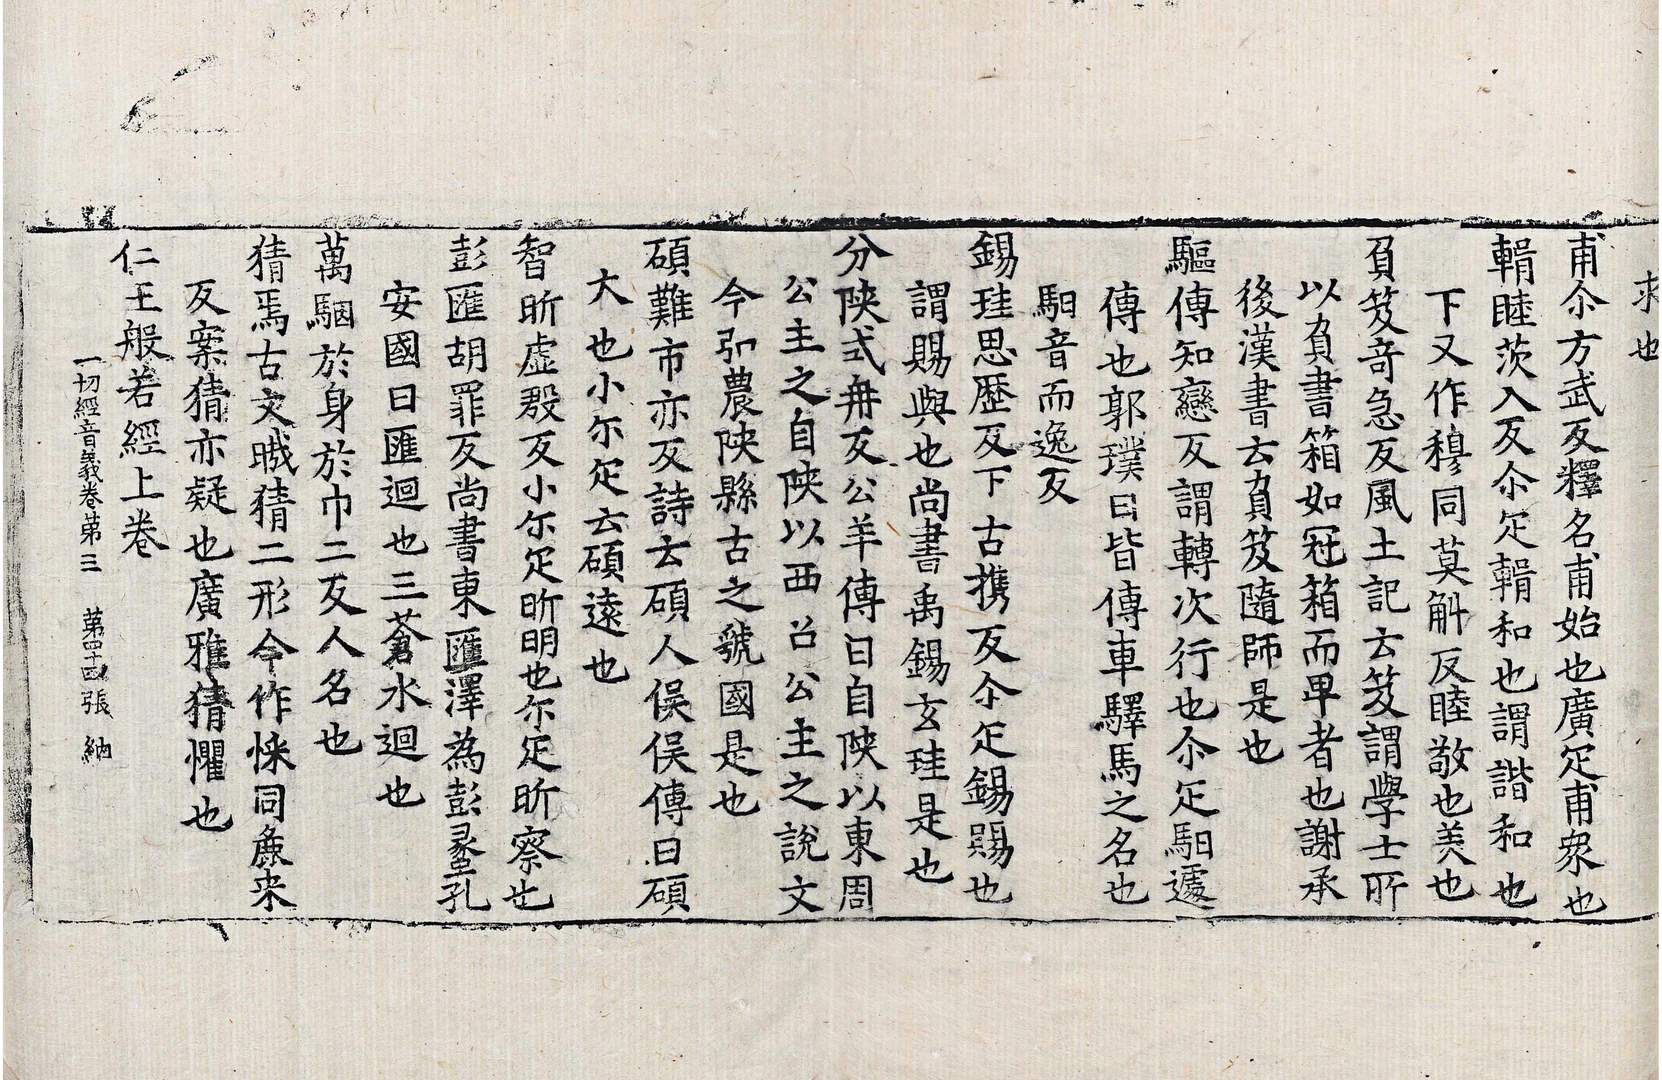 求也
甫尒方武反釋名甫始也廣疋甫衆也
輯睦茨入反尒疋輯和也謂諧和也
下又作穆同莫斛反睦敬也美也
負笈竒急反風土記云笈謂學士所
以負書箱如冠箱而卑者也謝承
後漢書云負笈隨師是也
驅傳知戀反謂轉次行也尒疋馹遽
傳也郭璞曰皆傳車驛馬之名也
馹音而逸反
錫珪思歷反下古携反尒疋錫賜也
謂賜與也尚書禹錫玄珪是也
分陝式冉反公羊傳曰自陝以東周
公主之自陝以西召公主之說文
今弘農陝縣古之虢國是也
碩難市亦反詩云碩人俁俁傳曰碩
大也小尓疋云碩遠也
智昕虛殷反小尓疋昕明也尓疋昕察也
彭匯胡罪反尚書東匯澤為彭蠡孔
安國曰匯迴也三蒼水迴也
萬駰於身於巾二反人名也
猜焉古文𢧵猜二形今作倸同麁來
反案猜亦疑也廣雅猜懼也
仁王般若經上卷
一切經音義卷第三 第四十四張 納